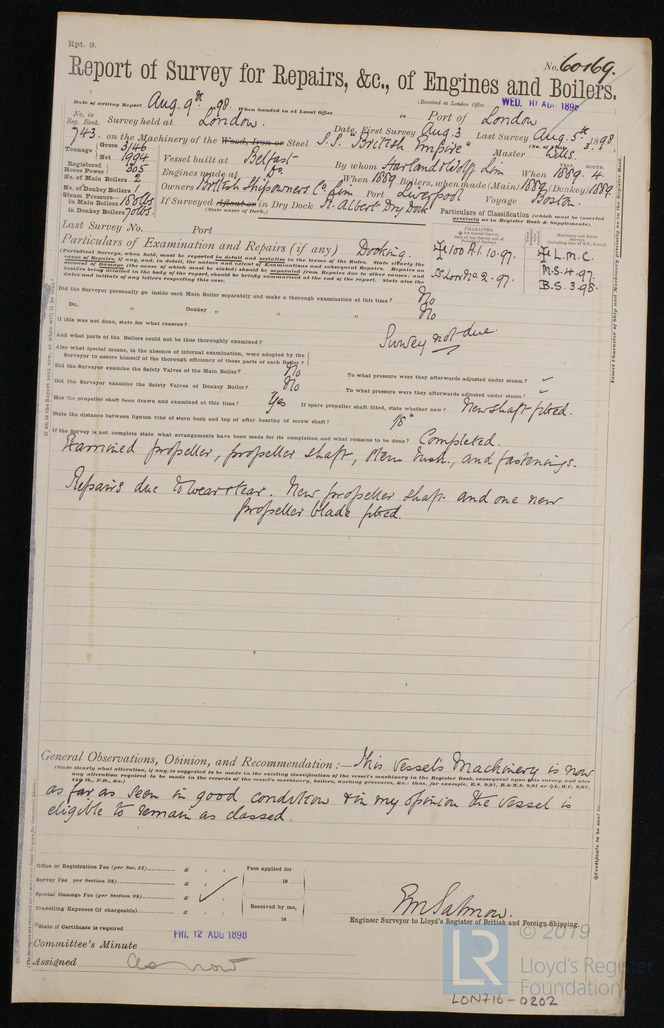 Rpt. 9.
No. 60169.
Report of Survey for Repairs, &c., of Engines and Boilers.
(Received at London Office WED. 10 AUG 1898
Date of writing Report Aug. 9th 98. When handed in at Local Office Port of London
No. in Reg. Book. Survey held at London. Date, First Survey Aug. 3 Last Survey Aug. 5th 1898
743. on the Machinery of the Wood, Iron or Steel S.S. "British Empire" Master Wills.
Tonnage Gross 3146 Net 1994 Vessel built at Belfast By whom Harland & Wolff Lim When 1889. 4
Registered Horse Power 305 Engines made at do When 1889 Boilers, when made (Main) 1889 (Donkey) 1889.
No. of Main Boilers 2 Owners British Shipowners Co Lim Port Liverpool Voyage Boston.
No. of Donkey Boilers 1
Steam Pressure in Main Boilers 180 lbs If Surveyed Afloat or in Dry Dock R. Albert Dry Dock
in Donkey Boilers 70 lbs (State name of Dock.)
Particulars of Classification (which must be inserted precisely as in Register Book & Supplements).
Last Survey No. Port
Particulars of Examination and Repairs (if any) Docking.
100 A1. 10.97. L.M.C.
M.S. 4.97.
B.S. 3.98.
Did the Surveyor personally go inside each Main Boiler separately and make a thorough examination at this time? No
Do. " Donkey " " " No
If this was not done, state for what reasons?
And what parts of the Boilers could not be thus thoroughly examined? Survey not due
Also what special means, in the absence of internal examination, were adopted by the Surveyor to assure himself of the thorough efficiency of those parts of each Boiler?
Did the Surveyor examine the Safety Valves of the Main Boiler? No To what pressure were they afterwards adjusted under steam?
Did the Surveyor examine the Safety Valves of Donkey Boiler? No To what pressure were they afterwards adjusted under steam?
Has the propeller shaft been drawn and examined at this time? Yes If spare propeller shaft fitted, state whether new? New shaft fitted.
State the distance between lignum vitæ of stern bush and top of after bearing of screw shaft?
If the Survey is not complete state what arrangements have been made for its completion and what remains to be done? Completed.
Examined propeller, propeller shaft, stern bush, and fastenings.
Repairs due to wear & tear. New propeller shaft and one new
propeller blade fitted.
General Observations, Opinion, and Recommendation:— This vessel's Machinery is now
as far as seen in good condition & in my opinion the vessel is
eligible to remain as classed.
Office or Registration Fee (per Sec. 27) £ Fees applied for
Survey Fee per Section 28) £ 18
Special Damage Fee (per Section 28) £
Travelling Expenses (if chargeable) £ Received by me,
18
Engineer Surveyor to Lloyd's Register of British and Foreign Shipping.
State if Certificate is required
FRI, 12 AUG 1898
Committee's Minute
Assigned as now
© 2019
LR
Lloyd's Register
Foundation
LON716-0202